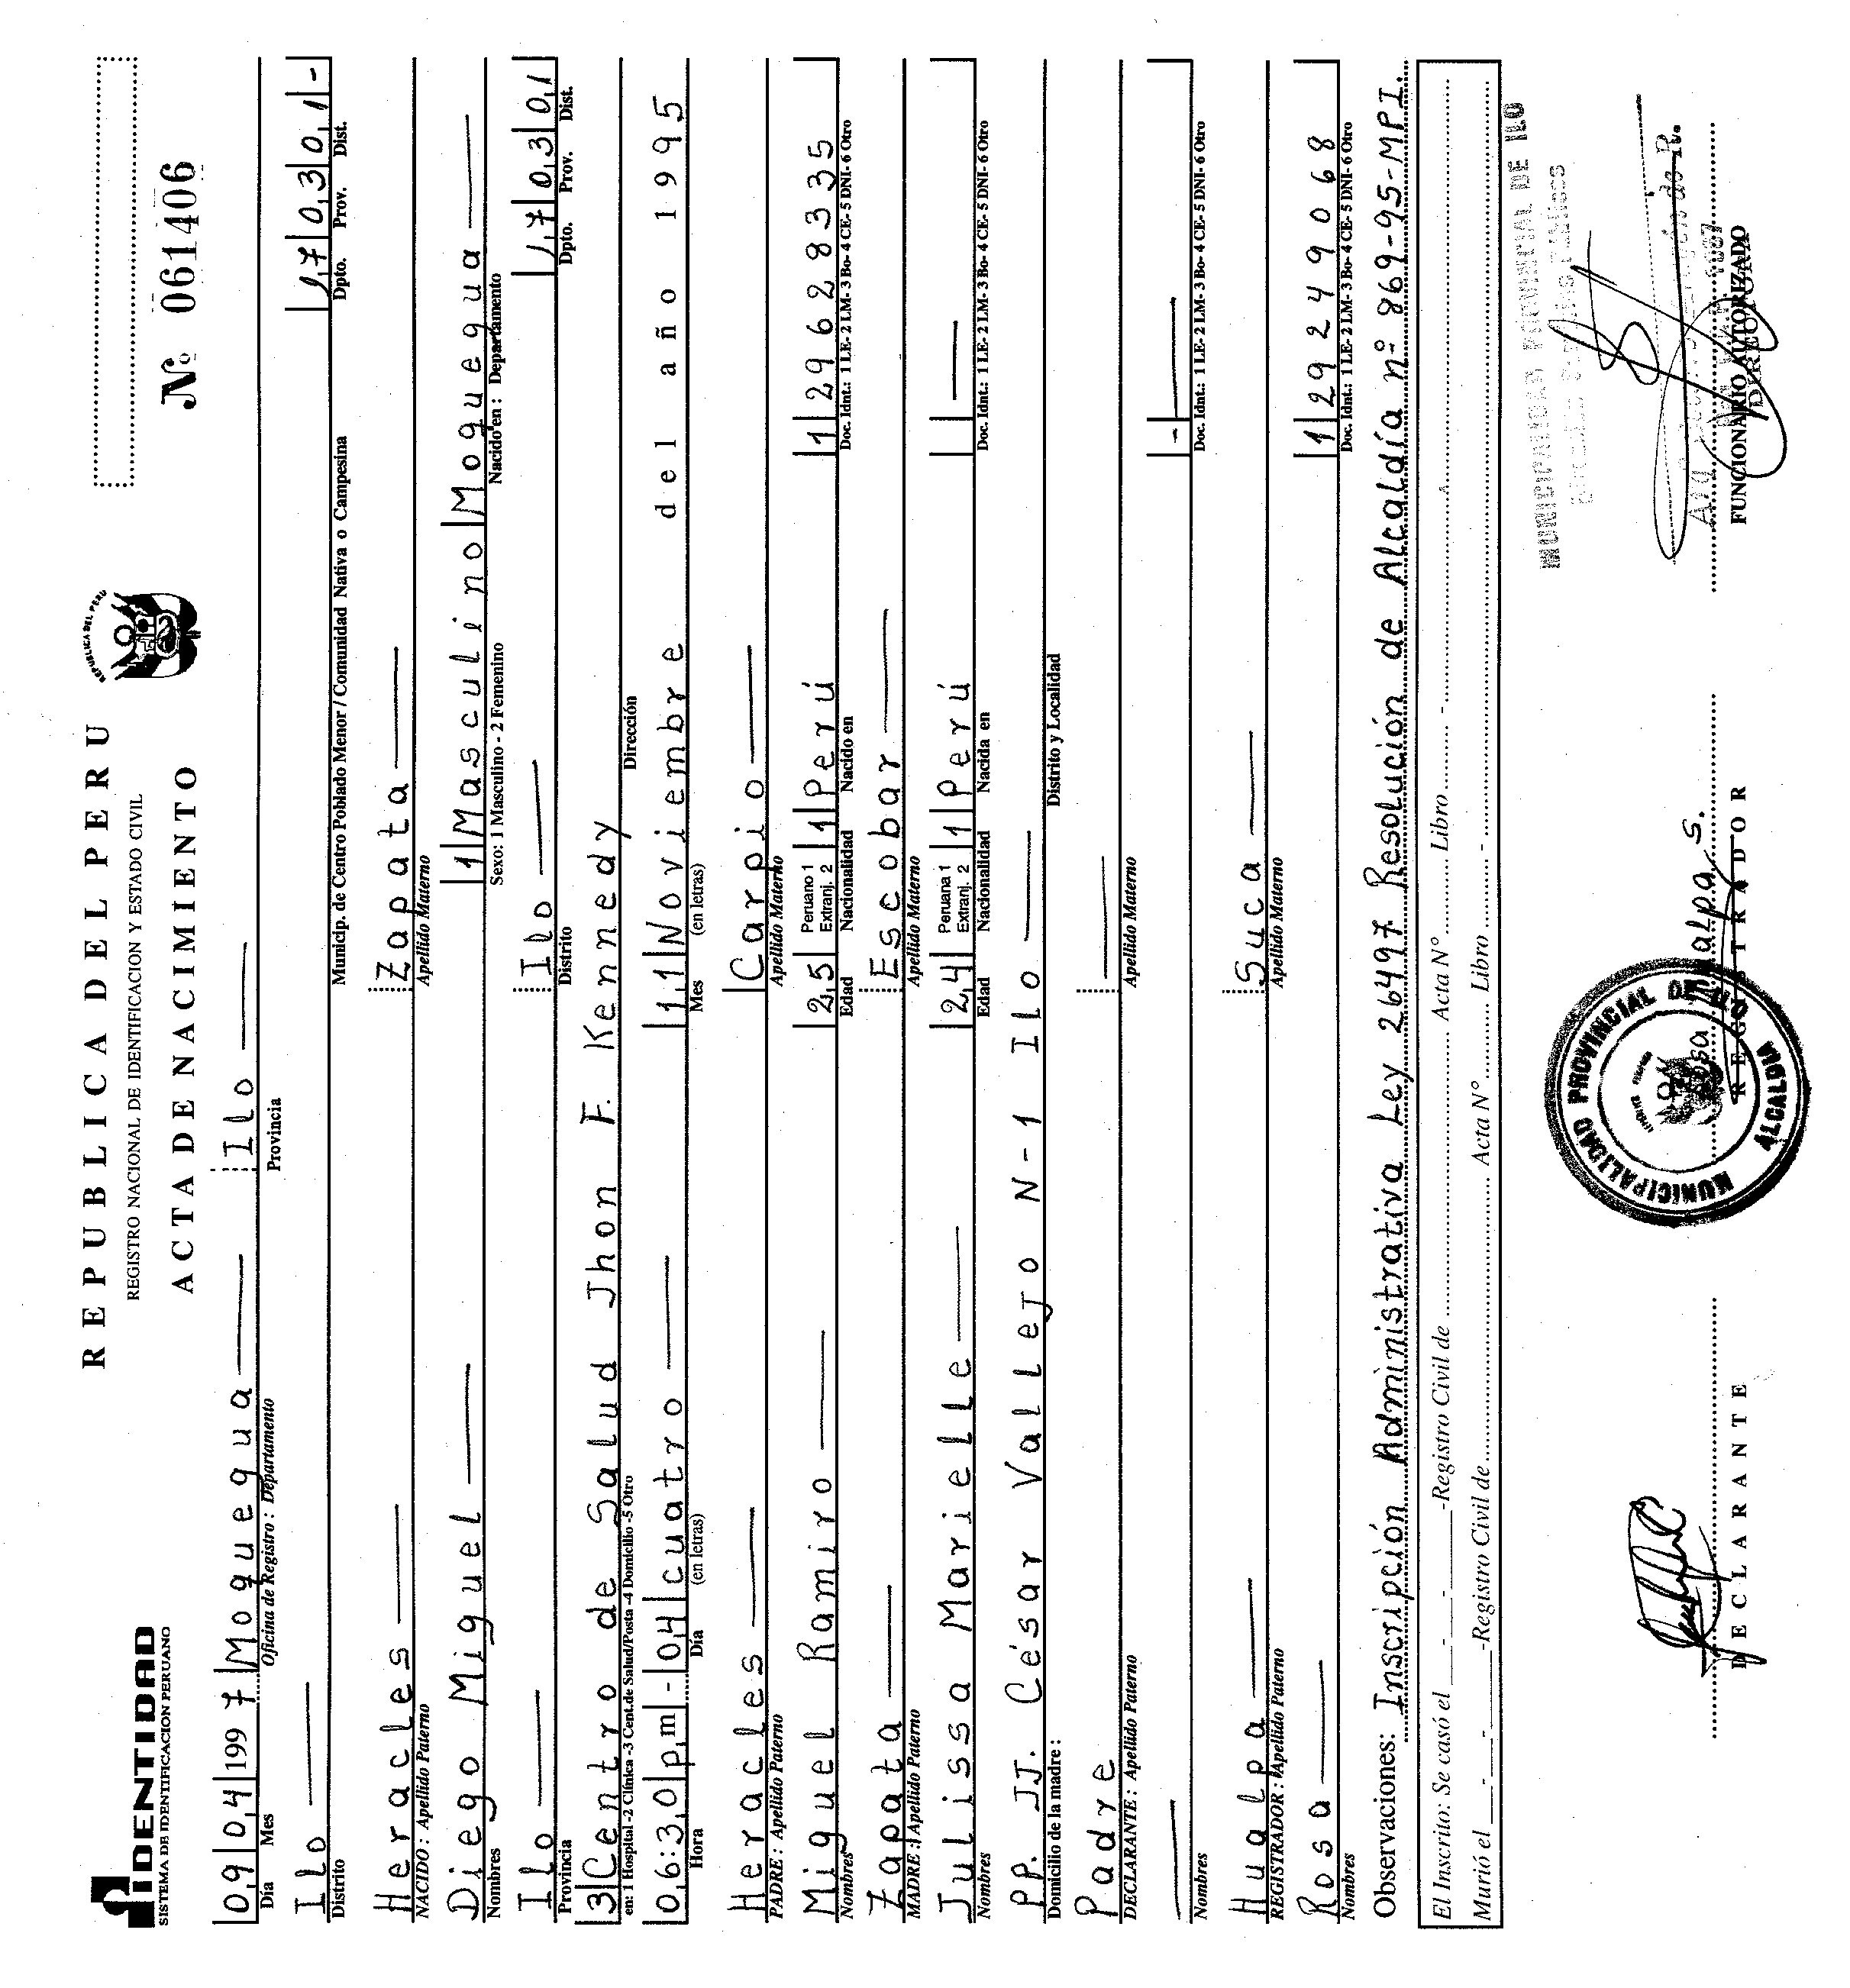 IDENTIDAD
SISTEMA DE IDENTIFICACION PERUANO
REPUBLICA DEL PERU
REGISTRO NACIONAL DE IDENTIFICACION Y ESTADO CIVIL
ACTA DE NACIMIENTO
REPUBLICA DEL PERU
Nº 061406
09 04 1997 Moquegua Ilo
Día Mes Oficina de Registro : Departamento Provincia
Ilo 17 03 01 -
Distrito Municip. de Centro Poblado Menor / Comunidad Nativa o Campesina Dpto. Prov. Dist.
Heracles Zapata
NACIDO : Apellido Paterno Apellido Materno
Diego Miguel 1 Masculino Moquegua
Nombres Sexo: 1 Masculino - 2 Femenino Nacido en : Departamento
Ilo Ilo 17 03 01
Provincia Distrito Dpto. Prov. Dist.
3 Centro de Salud Jhon F. Kennedy
en: 1 Hospital -2 Clínica -3 Cent.de Salud/Posta -4 Domicilio -5 Otro Dirección
06:30 pm - 04 cuatro 11 Noviembre del año 1995
Hora Día (en letras) Mes (en letras)
Heracles Carpio
PADRE : Apellido Paterno Apellido Materno
Miguel Ramiro 25 Peruano 1 Extranj. 2 1 Perú 1 29628335
Nombres Edad Nacionalidad Nacido en Doc. Idnt.: 1 LE- 2 LM- 3 Bo- 4 CE- 5 DNI- 6 Otro
Zapata Escobar
MADRE : Apellido Paterno Apellido Materno
Julissa Marielle 24 Peruana 1 Extranj. 2 1 Perú
Nombres Edad Nacionalidad Nacida en Doc. Idnt.: 1 LE- 2 LM- 3 Bo- 4 CE- 5 DNI- 6 Otro
PP. JJ. César Vallejo N-1 Ilo
Domicilio de la madre : Distrito y Localidad
Padre
DECLARANTE : Apellido Paterno Apellido Materno
-
Nombres Doc. Idnt.: 1 LE- 2 LM- 3 Bo- 4 CE- 5 DNI- 6 Otro
Hualpa Suca
REGISTRADOR : Apellido Paterno Apellido Materno
Rosa 1 29249068
Nombres Doc. Idnt.: 1 LE- 2 LM- 3 Bo- 4 CE- 5 DNI- 6 Otro
Observaciones: Inscripción Administrativa Ley 26497 Resolución de Alcaldía nº 869-95-MPI.
El Inscrito: Se casó el - - -Registro Civil de Acta Nº Libro -
Murió el - - -Registro Civil de Acta Nº Libro -
MUNICIPALIDAD PROVINCIAL DE ILO
MUNICIPALIDAD PROVINCIAL DE ILO
ALCALDIA
Rosa Hualpa S.
DECLARANTE REGISTRADOR FUNCIONARIO AUTORIZADO
DIRECTORA